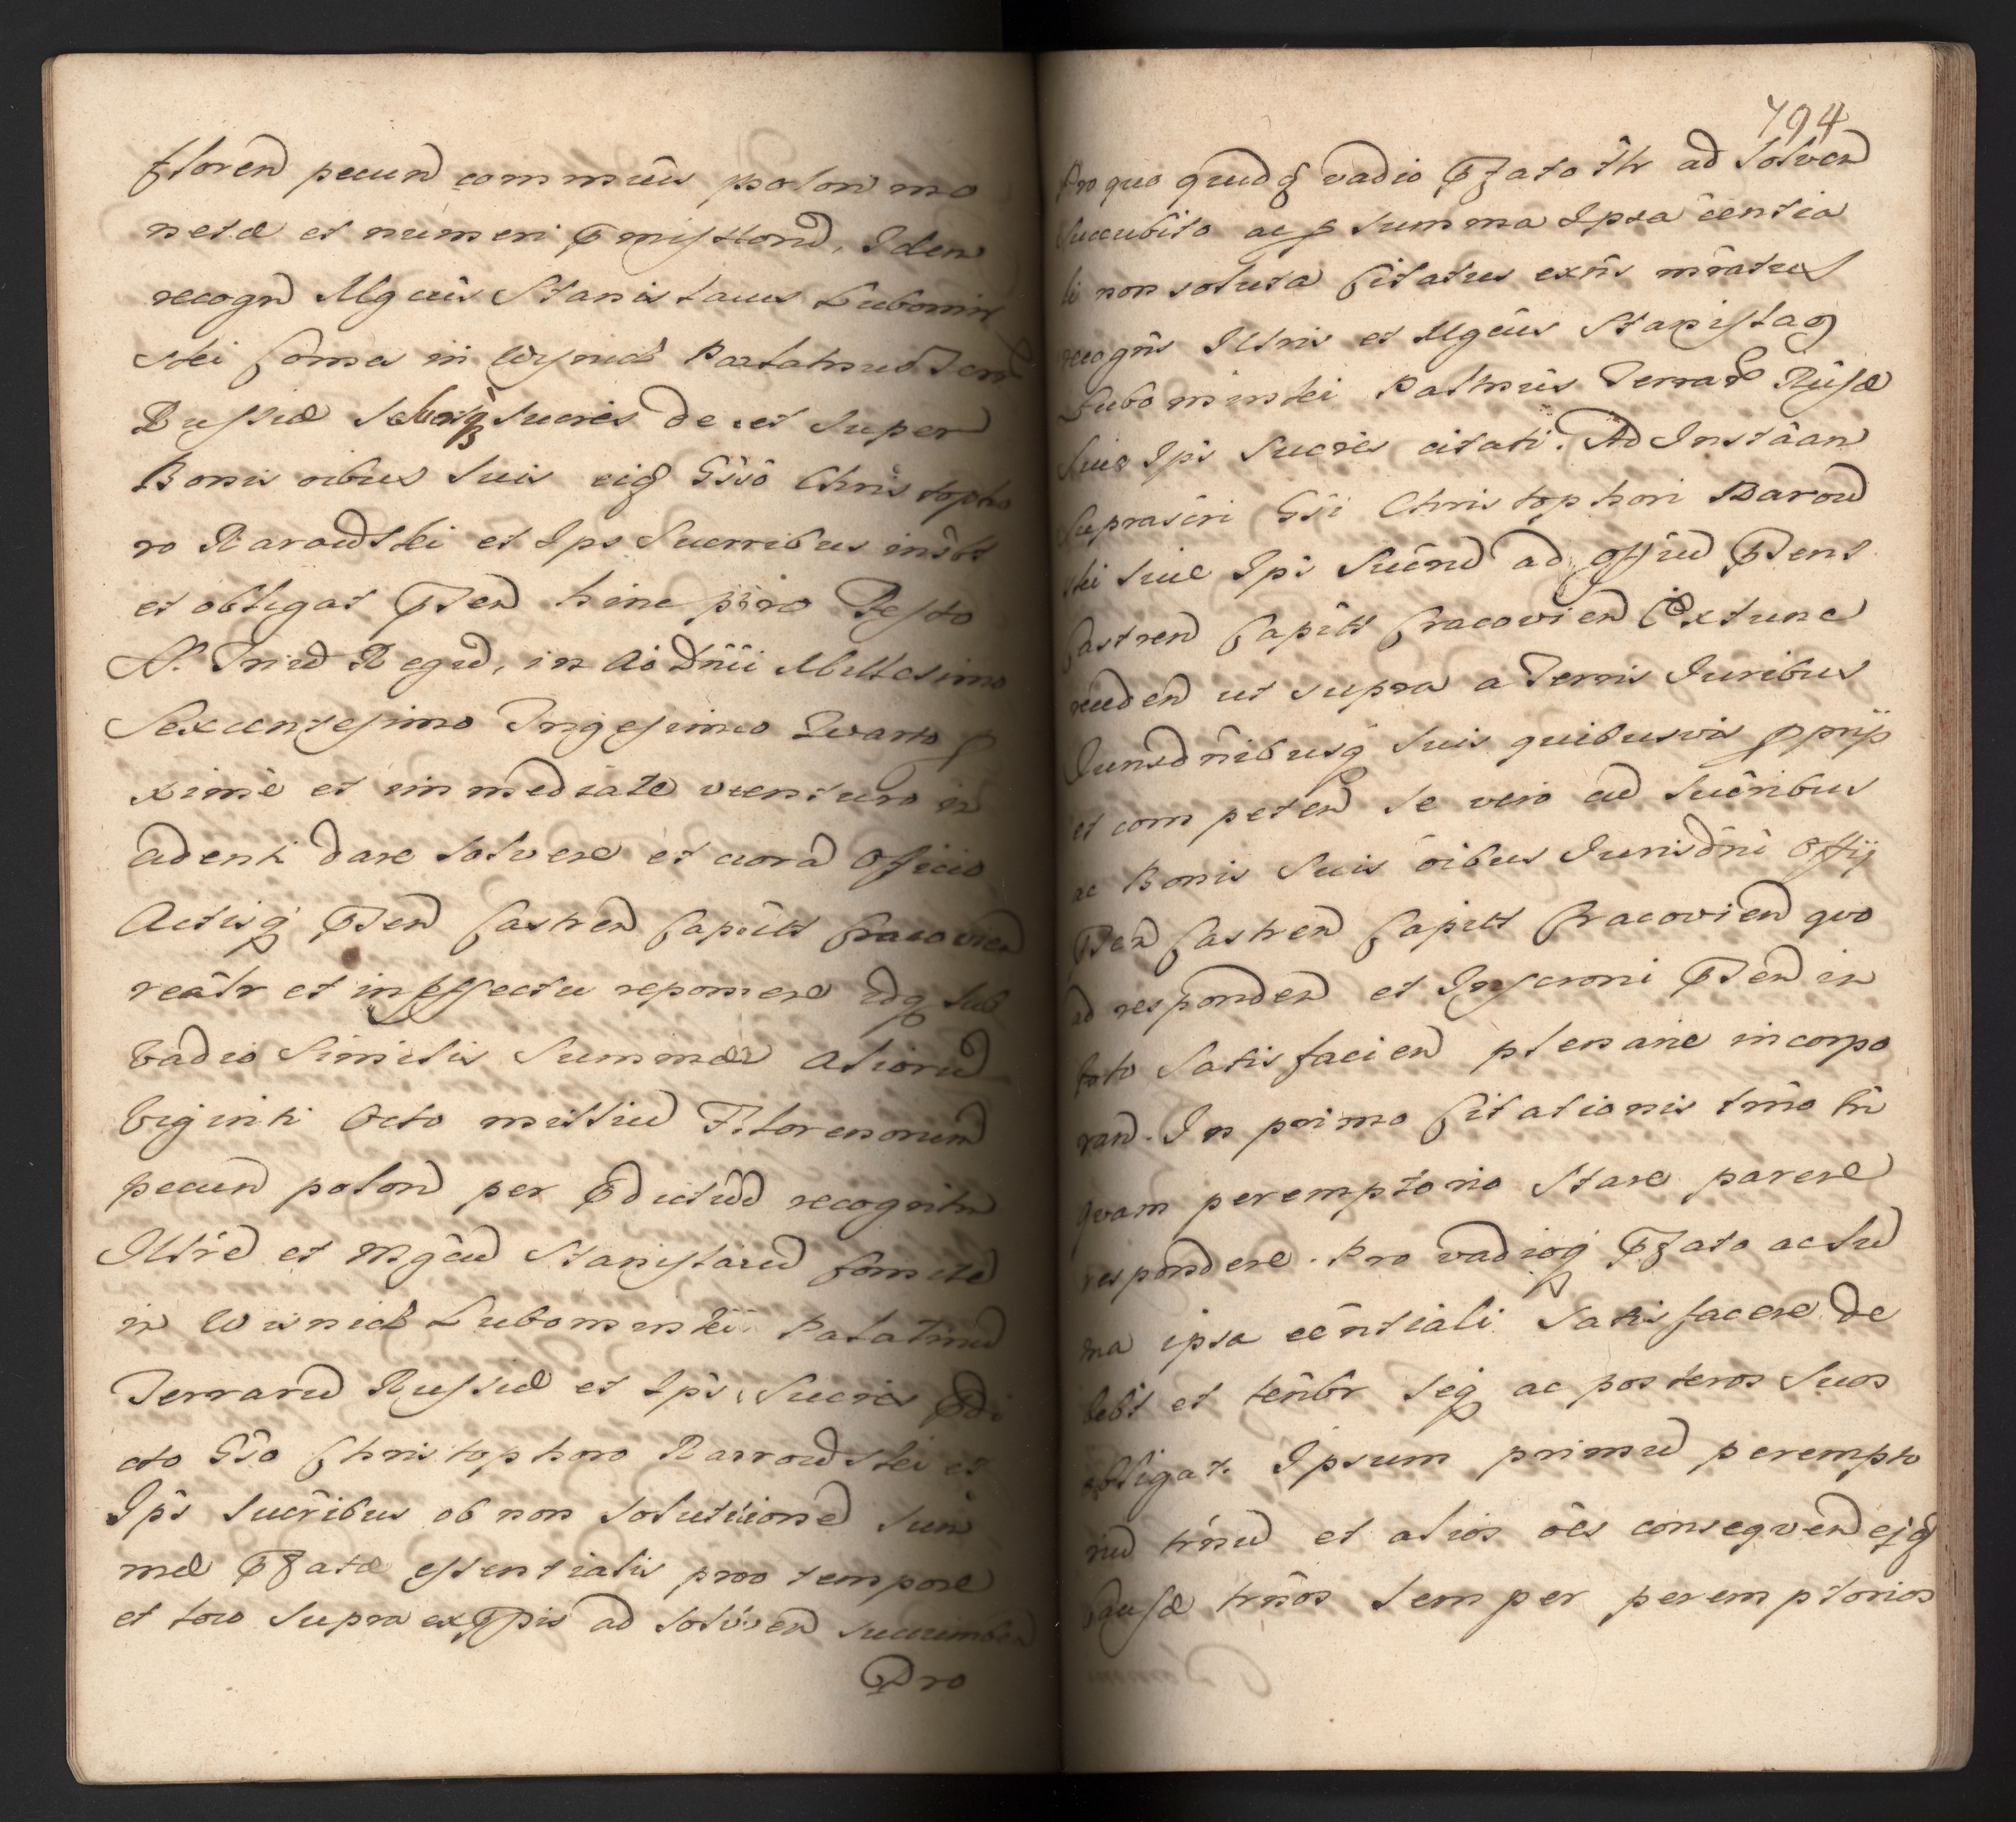 floren pecun commūis polon mo
netæ et numeri Pmisstorū, Iden
recogn Mgcūs Stanislaus Lubomir
ski Comes in Wisnicz Palatinus Terr
Russiæ se suosq sucrēs de et super
Bonis oībus suis eidē Gsō Christopho
ro Barowski et Ips sucrribus inscbt
et obligat PSen hinc pro Festo
S. Triū Regū, in Aō Dnīi Millesimo
Sexcentesimo Trigesimo Quarto p
ximē et immediate venturo in
cidenti dare solvere et corā Officio
Actisq PSen Castren Capītt Cracovien
reālr et in effectu reponere idq sub
vadio similis summæ aliorū
Viginti Octo milliū Florenorum
pecun polon per Pdictū recognitū
Illrē et Mgcū Stanislaū Comitē
in Wisnicz Lubomirski Palatinū
Terrarū Russiæ et Ips Sucrēs Pdi
cto Gsō Christophoro Barrowski et
Ips sucrībus ob non solutionē sum
mæ Pfatæ essentialis pro tempore
et loco supra exPpis ad solven succumben
Pro
794
Pro quo quidē vadio Pfato tlr ad solven
succubito ac p summa Ipsa ēentia
li non soluta Citatus exñs mratus
recogñs Illris et Mgcūs Stanislaq
Lubomirski Palnūs Terrar Rusæ
suiq Ips sucrēs citati. Ad Instāan
suprascri Gsi Christophori Barow
ski sive Ips Sucrū ad Offiū PSens
Castren Capitt Cracovien Extunc
receden ut supra a Terris Iuribus
Iurisdnībusq suis quibusvis pprijs
et competen se vero cū sucrībus
ac Bonis suis oībus Iurisdnī Offij
PSen Castren Capitt Cracovien quo
ad responden et Inscroni PSen in
toto satisfacien plenarie incorpo
ran. In primo Citationis trño tn
quam peremptorio stare parere
respondere. Pro vadioq Pfato ac su
ma ipsa eēntiali satisfacere de
bebt et tenbr seq ac posteros suos
obligat. Ipsum primū perempto
riū trñū et alios oēs consequen ejq
causæ trños semper peremptorios